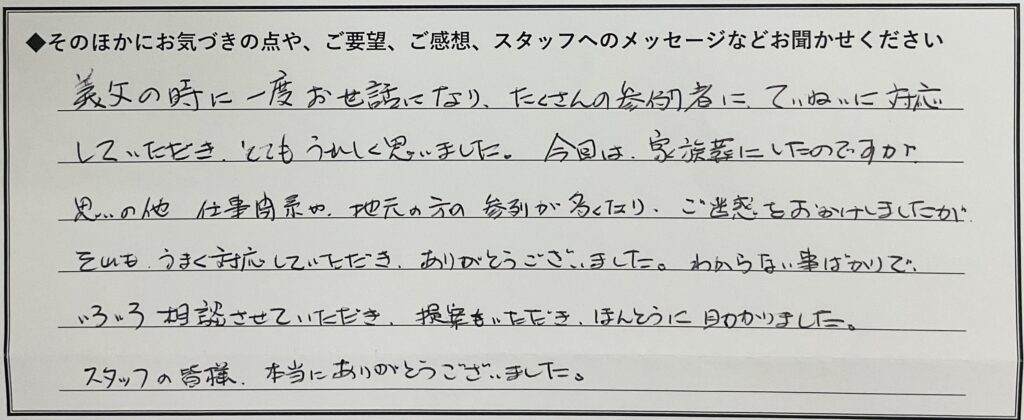 ◆そのほかにお気づきの点や、ご要望、ご感想、スタッフへのメッセージなどお聞かせください
義父の時に一度お世話になり、たくさんの参列者に、ていねいに対応
していただき、とてもうれしく思いました。今回は、家族葬にしたのですが、
思いの他 仕事関系や、地元の方の参列が多くなり、ご迷惑をおかけしましたが、
それも、うまく対応していただき、ありがとうございました。わからない事ばかりで、
いろいろ相談させていただき、提案もいただき、ほんとうに助かりました。
スタッフの皆様、本当にありがとうございました。